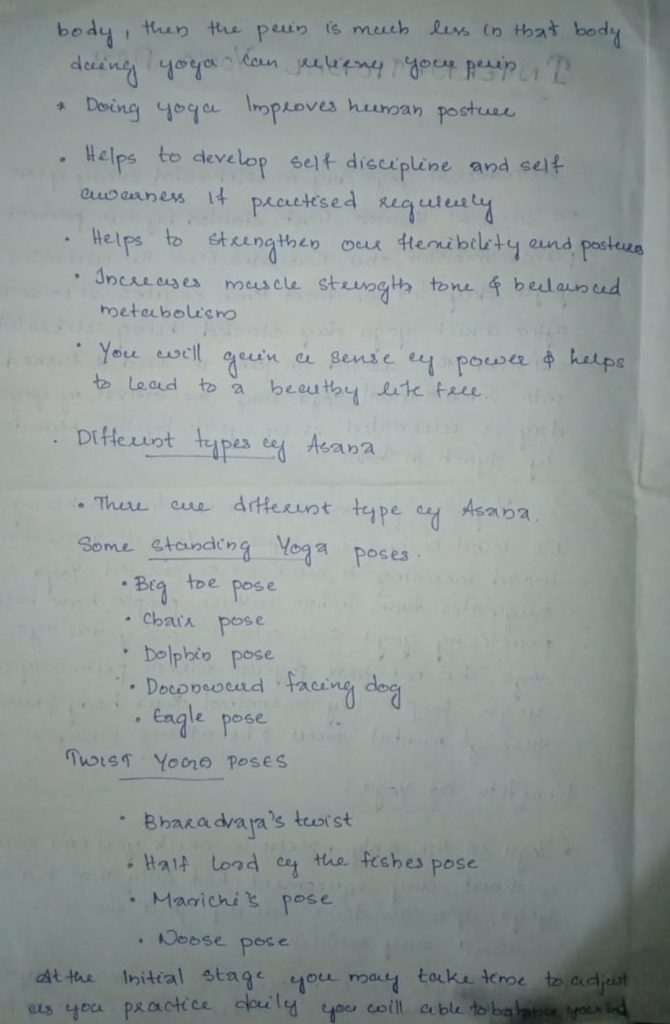 body, then the pain is much less in that body
doing yoga can relieve your pain
* Doing yoga Improves human posture
• Helps to develop self discipline and self
awarness If practised regularly
• Helps to strengthen our flexibility and postures
• Increases muscle strength tone & balanced
metabolism
• You will gain a sense of power & helps
to Lead to a healthy life free
• Different types of Asana
• There are different type of Asana.
Some standing Yoga poses.
• Big toe pose
• Chair pose
• Dolphin pose
• Downward facing dog
• Eagle pose
TWIST YOGA POSES
• Bharadvaja's twist
• Half Lord of the fishes pose
• Marichi's pose
• Noose pose
At the Initial stage you may take time to adjust
as you practice daily you will able to balance